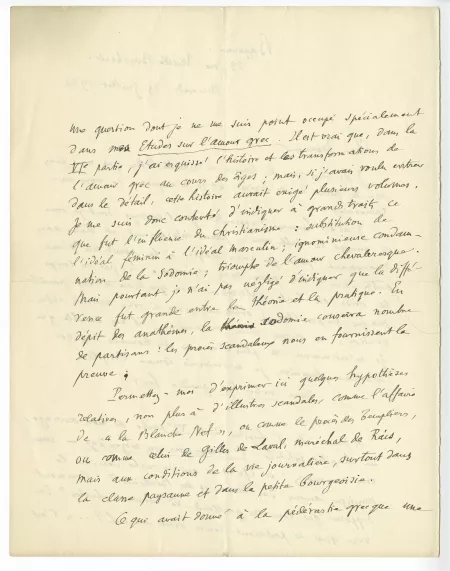 Une question dont je ne me suis point occupé spécialement
dans mon Etudes sur l'amour grec. Il est vrai que, dans la
VIe partie, j'ai esquissé l'histoire et les transformations de
l'amour grec au cours des âges; mais, si j'avais voulu entrer
dans le détail, cette histoire aurait exigé plusieurs volumes.
Je me suis donc contenté d'indiquer à grands traits ce
que fut l'influence du Christianisme: substitution de
l'idéal féminin à l'idéal masculin; ignominieuse condam-
nation de la Sodomie; triomphe de l'amour chevaleresque.
Mais pourtant je n'ai pas négligé d'indiquer que la diffé-
rence fut grande entre la théorie et la pratique. En
dépit des anathèmes, la sodomie conserva nombre
de partisans: les procès scandaleux nous en fournissent la
preuve.
Permettez-moi d'exprimer ici quelques hypothèses
relatives, non plus à d'illustres scandales comme l'affaire
de "la Blanche Nef", ou comme le procès des Templiers,
ou comme celui de Gilles de Laval, maréchal de Rais,
mais aux conditions de la vie journalière, surtout dans
la classe paysanne et dans la petite bourgeoisie.
Ce qui avait donné à la pédérastie grecque une